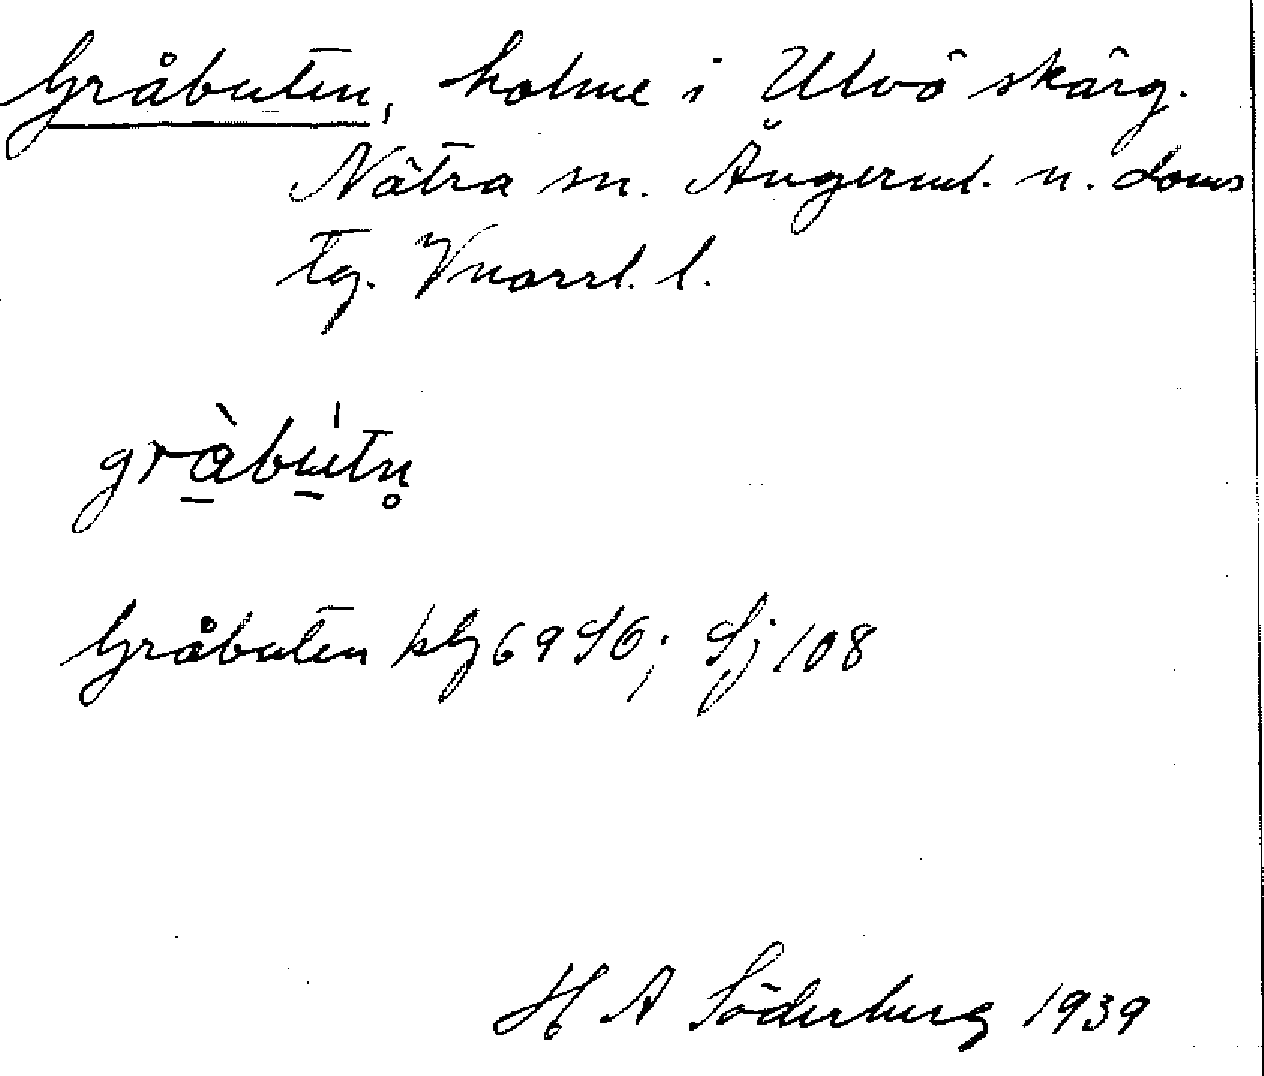 Gråbuten, holme i Ulvö skärg.
Nätra sn. Ångerml. n. doms
tg. Vnorrl. l.
gràbútn̥
Gråbuten kbl 69 SO; Sj 108
H A Söderberg 1939